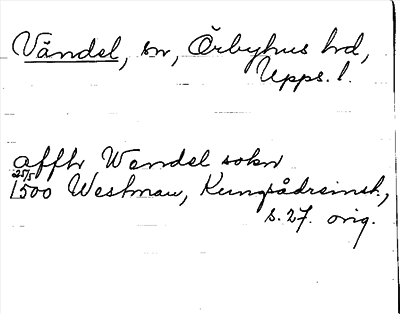 Vändel, sn, Örbyhus hd,
Upps. l.
affth Wendel sokn
25/5
1500 Westman, Kungsådreinst.,
s. 27. orig.